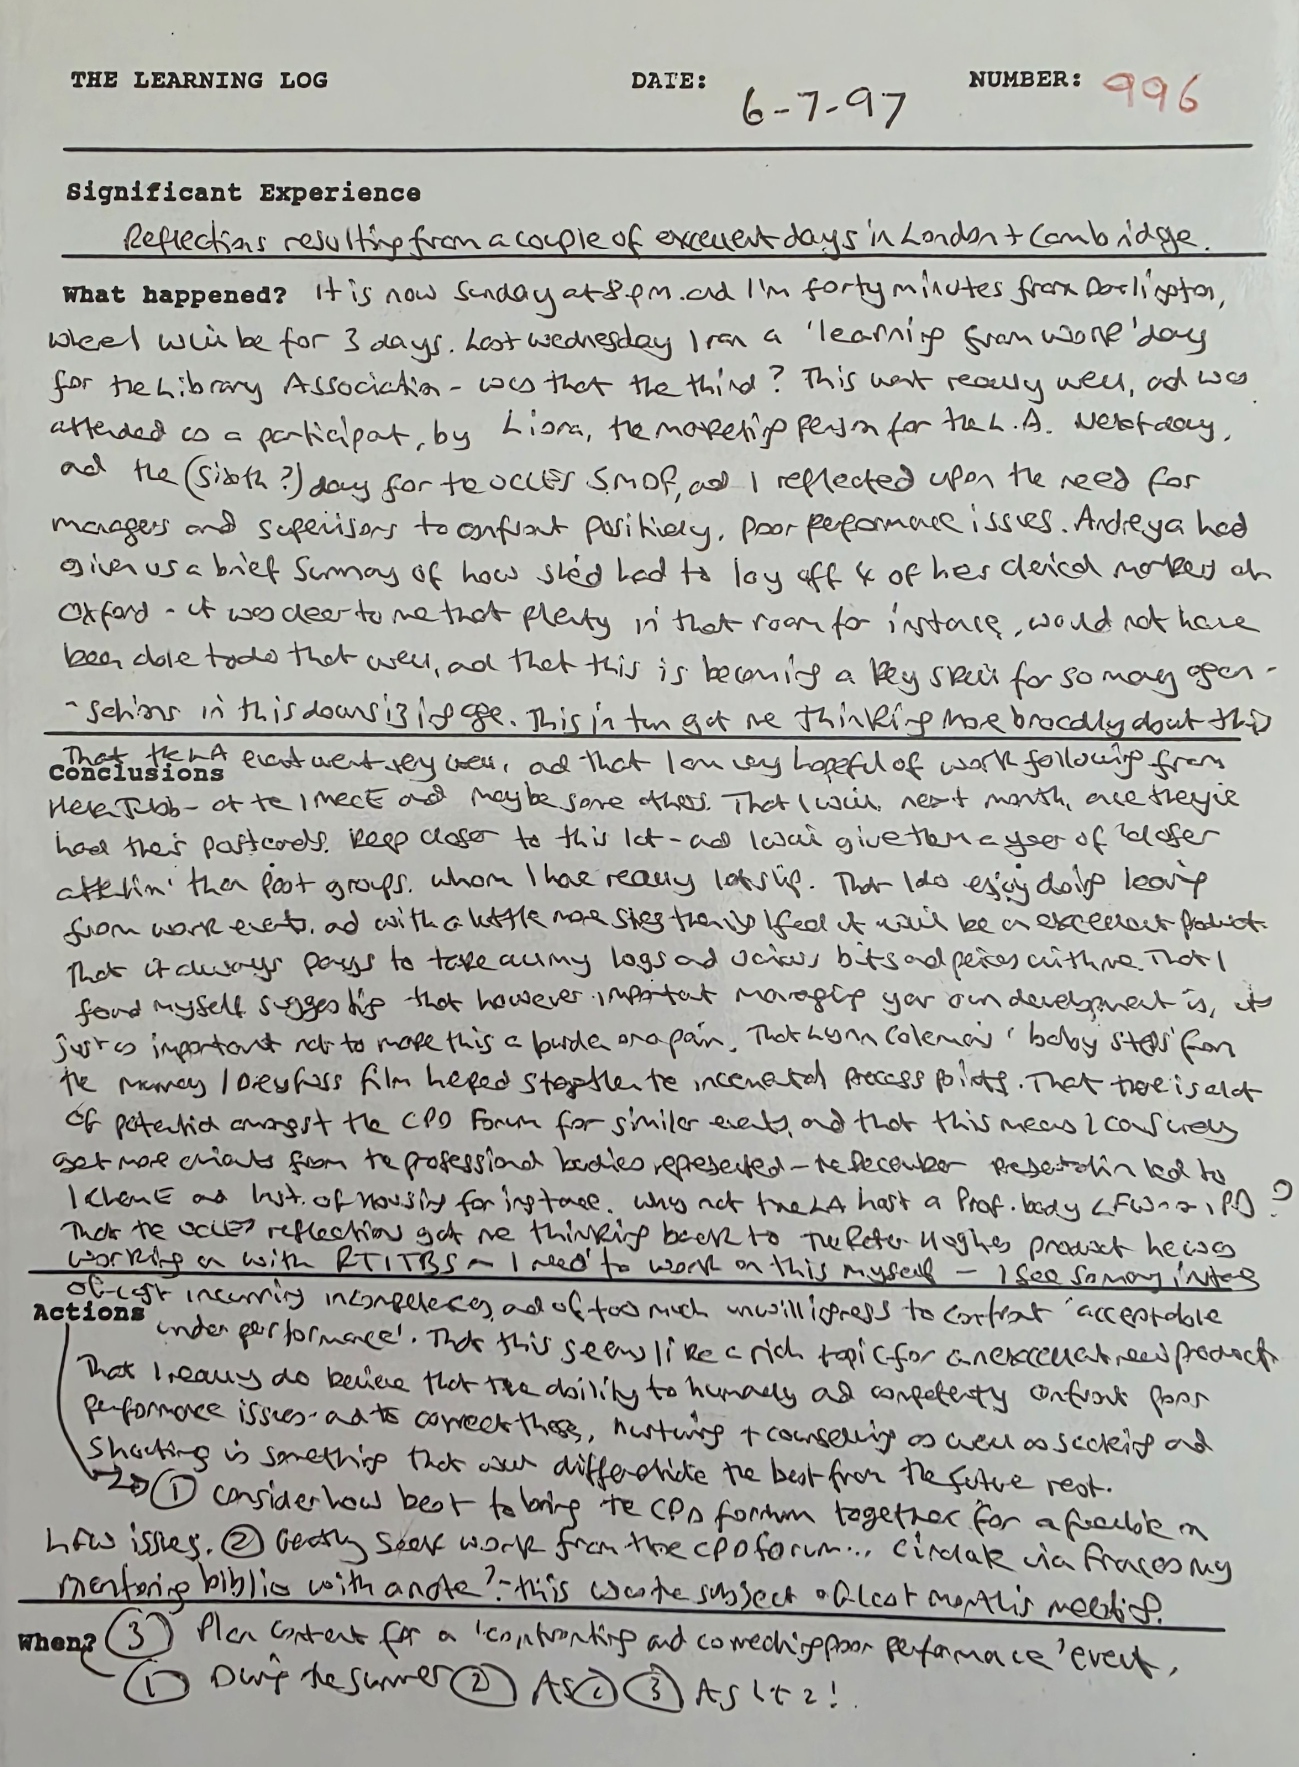 THE LEARNING LOG DATE: 6-7-97 NUMBER: 996
Significant Experience
Reflections resulting from a couple of excellent days in London + Cambridge.
What happened? It is now Sunday at 8pm. and I'm forty minutes from Darlington,
where I will be for 3 days. Last Wednesday I ran a 'learning from work' day
for the Library Association - was that the third? This went really well, and was
attended as a participant, by the marketing person for the L.A. Next day,
and the (sixth?) day for the UCLES SMDP, and I reflected upon the need for
managers and supervisors to confront positively, poor performance issues. Andreya had
given us a brief summary of how she'd had to lay off 4 of her clerical markers at
Oxford - it was clear to me that plenty in that room for instance, would not have
been able to do that well, and that this is becoming a key skill for so many organ-
-isations in this downsizing age. This in turn got me thinking more broadly about this
Conclusions That the LA event went very well, and that I am very hopeful of work following from
- at the IMechE and maybe some others. That I will, next month, once they've
had their postcards, keep closer to this lot - and I will give them a year of 'closer
attention' than past groups, whom I have really let slip. That I do enjoy doing learning
from work events, and with a little more I feel it will be an excellent product.
That it always pays to take all my logs and various bits and pieces with me. That I
found myself suggesting that however important managing your own development is, it's
just as important not to make this a burden or a pain. That Lynn Coleman's 'baby steps' from
the Murray / Dreyfuss film helped strengthen the incremental process points. That there is a lot
of potential amongst the CPD Forum for similar events, and that this means I can surely
get more clients from the professional bodies represented - the December presentation led to
IChemE and Inst. of Housing for instance. Why not the LA host a Prof. body LFW → IPD?
That the UCLES reflections got me thinking back to the Peter Hughes product he was
working on with RTITBS - I need to work on this myself - I see so many instances
of cost incurring incompetences, and of too much unwillingness to confront 'acceptable
Actions under performance'. That this seems like a rich topic for an excellent new product
That I really do believe that the ability to humanely and competently confront poor
performance issues and to correct these, nurturing + counselling as well as sacking and
shouting is something that will differentiate the best from the future rest.
① Consider how best to bring the CPD forum together for a freebie on
LFW issues. ② Gently seek work from the CPD forum... circulate via Frances my
mentoring biblio with a note? - this was the subject of last month's meeting.
When? ③ Plan content for a 'confronting and correcting poor performance' event.
① During the summer ② As ① ③ As 1 + 2!